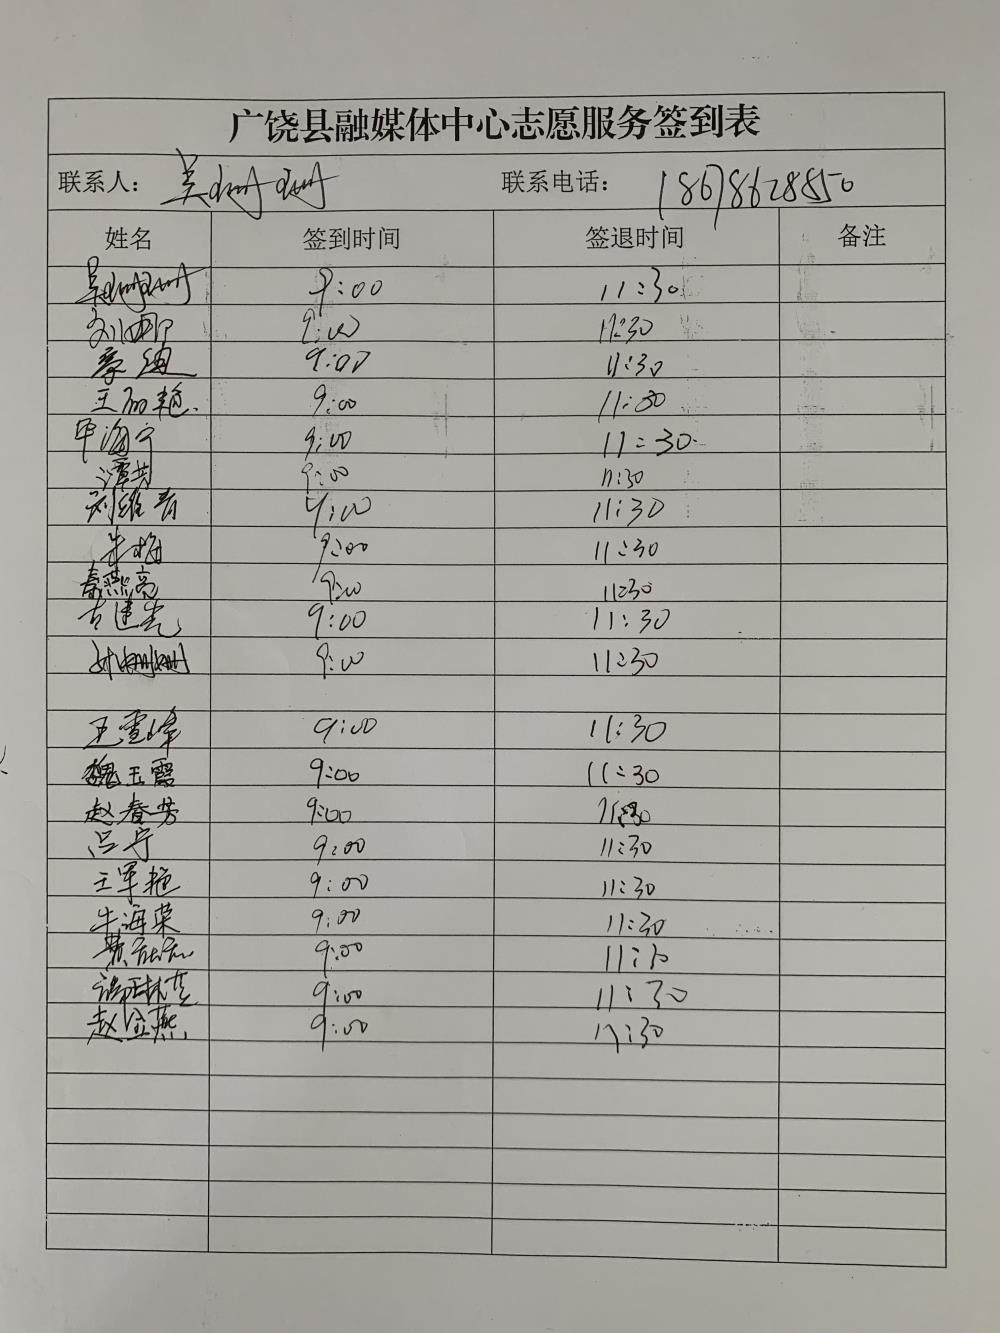 广饶县融媒体中心志愿服务签到表
联系人：吴珊珊 联系电话：18678628850
姓名 签到时间 签退时间 备注
吴珊珊 9:00 11:30
刘娜 9:00 11:30
9:00 11:30
王丽艳 9:00 11:30
海宁 9:00 11:30
谭芳 9:00 11:30
刘维青 9:00 11:30
朱梅 9:00 11:30
秦燕亮 9:00 11:30
古建光 9:00 11:30
珊珊 9:00 11:30
王雪峰 9:00 11:30
魏玉霞 9:00 11:30
赵春芳 9:00 11:30
吕宁 9:00 11:30
王军艳 9:00 11:30
牛海荣 9:00 11:30
9:00 11:30
9:00 11:30
赵金燕 9:00 11:30